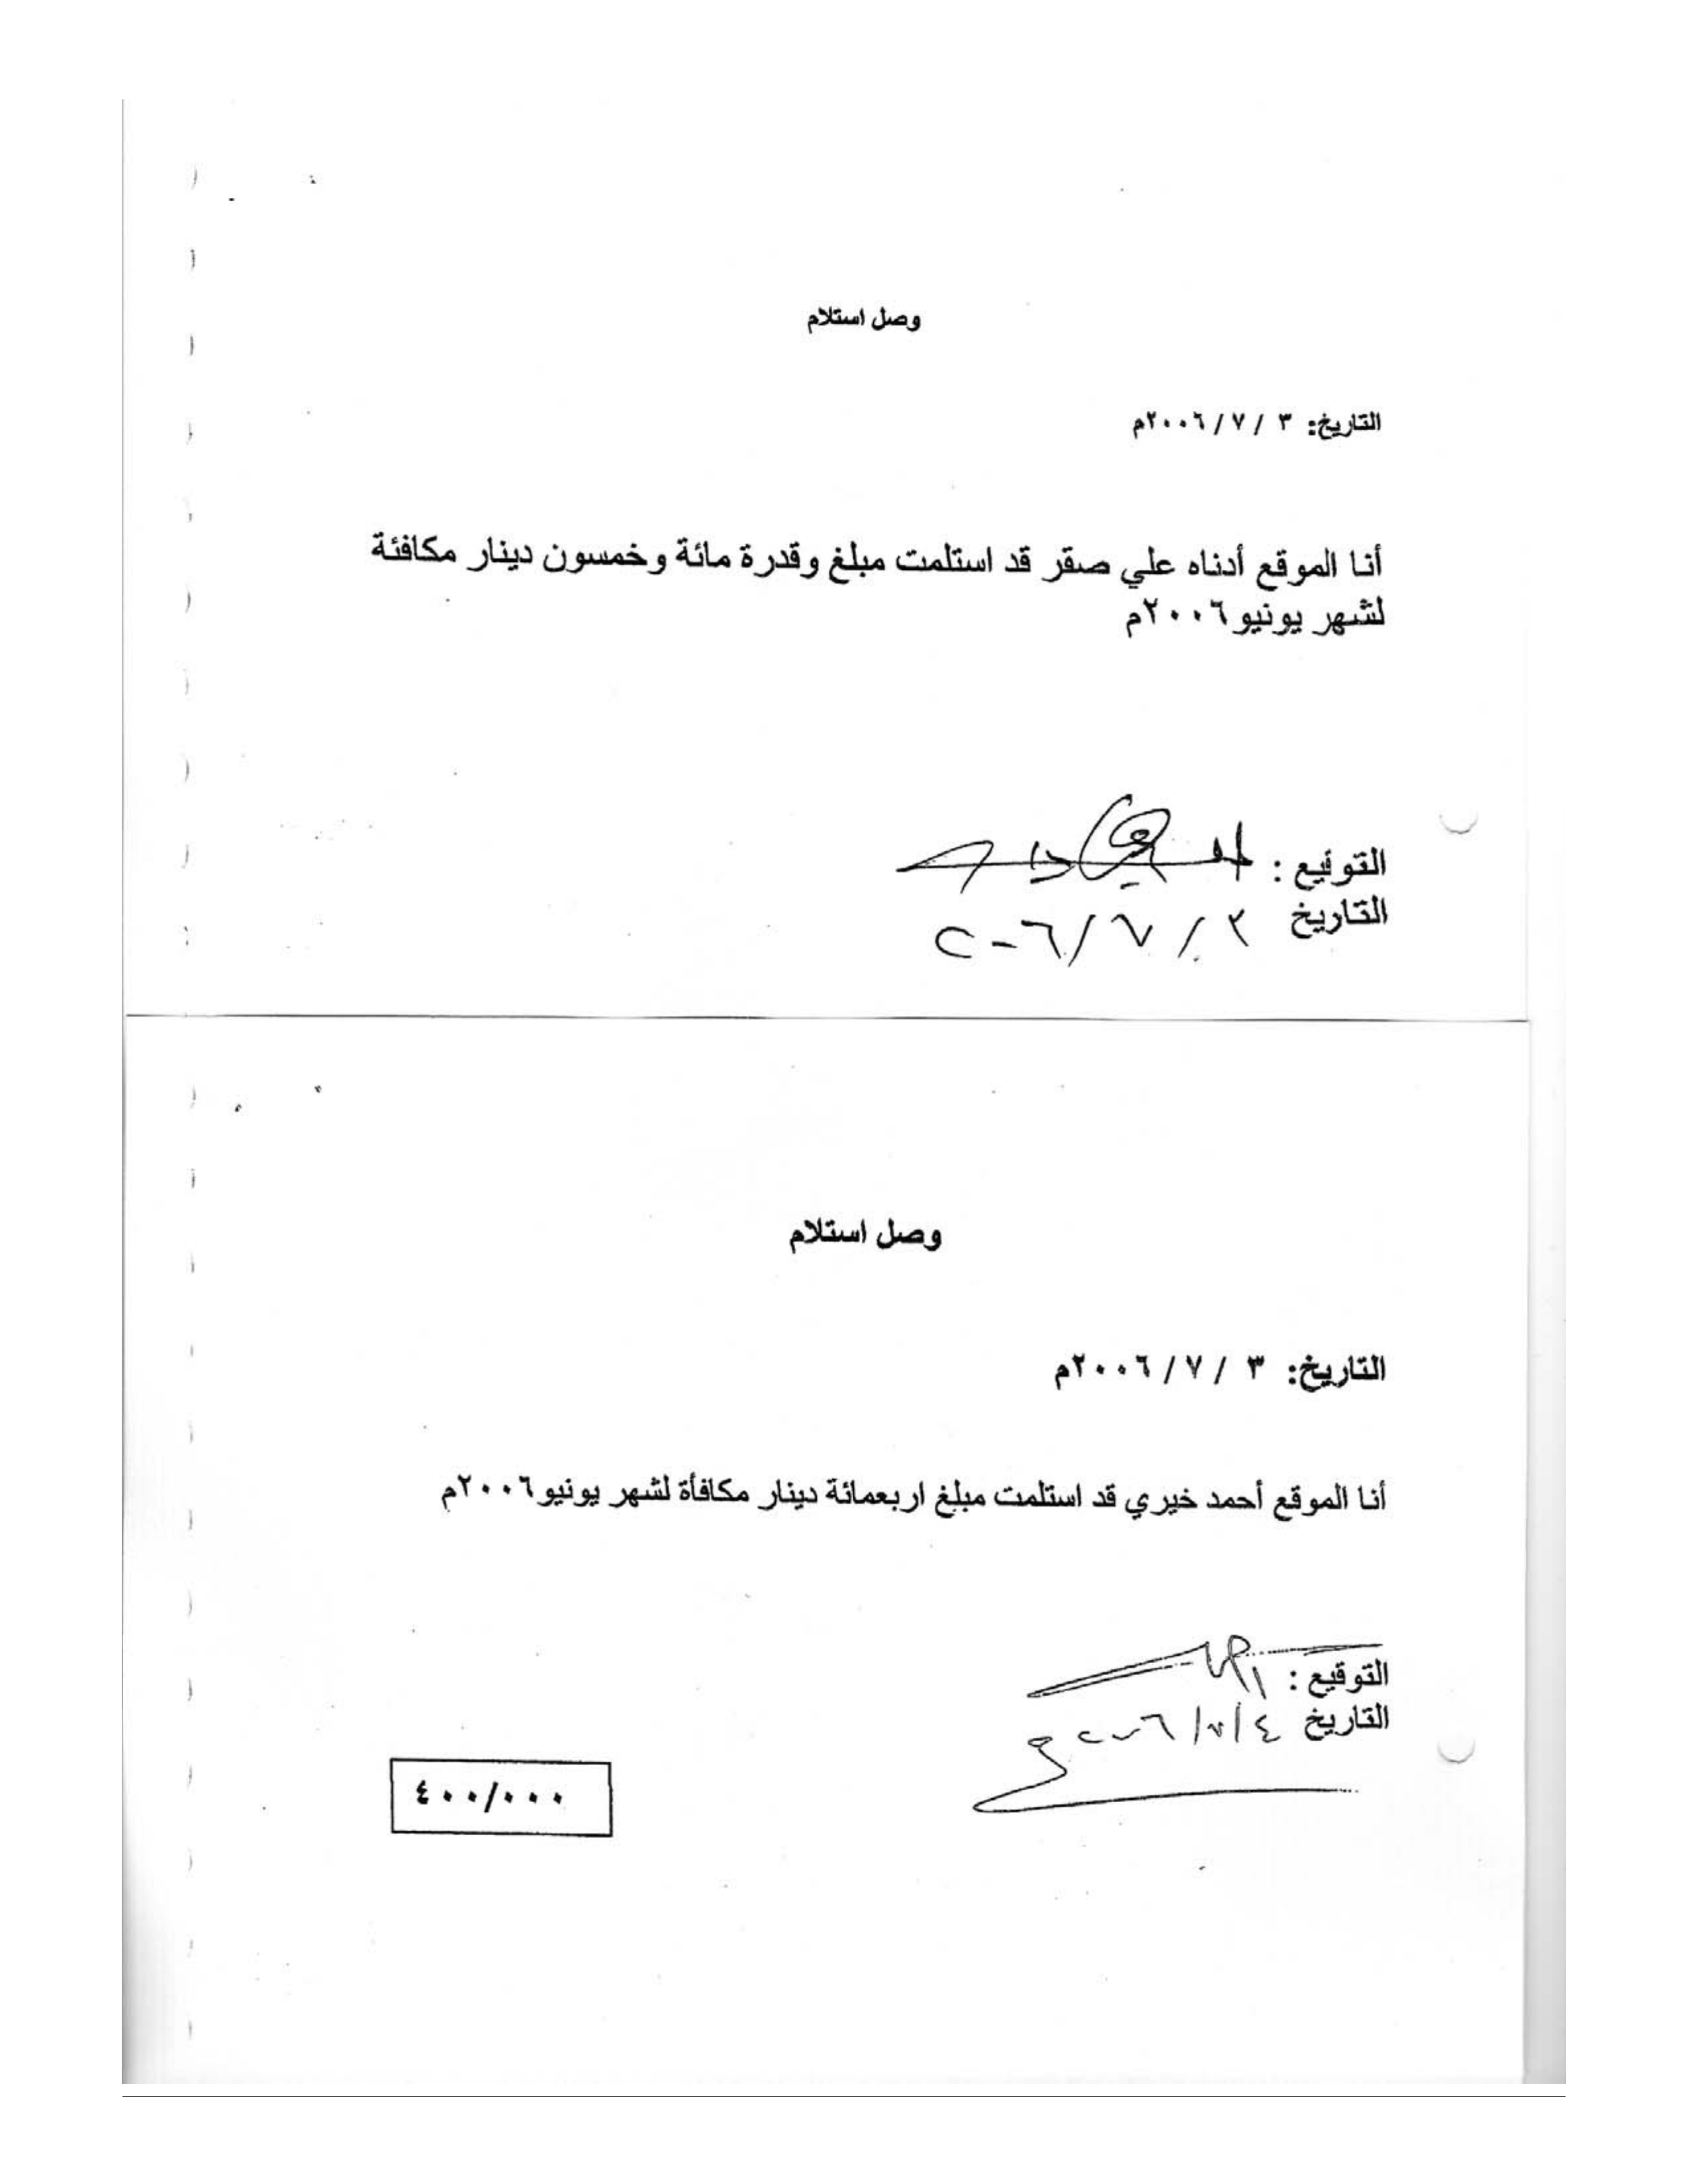 وصل استلام
التاريخ: ٣ / ٧ / ٢٠٠٦م
أنا الموقع أدناه علي صقر قد استلمت مبلغ وقدرة مائة وخمسون دينار مكافئة
لشهر يونيو ٢٠٠٦م
التوقيع :
التاريخ ٣ / ٧ / ٢٠٠٦
وصل استلام
التاريخ: ٣ / ٧ / ٢٠٠٦م
أنا الموقع أحمد خيري قد استلمت مبلغ اربعمائة دينار مكافأة لشهر يونيو ٢٠٠٦م
التوقيع :
التاريخ ٤ / ٧ / ٢٠٠٦
٤٠٠/٠٠٠